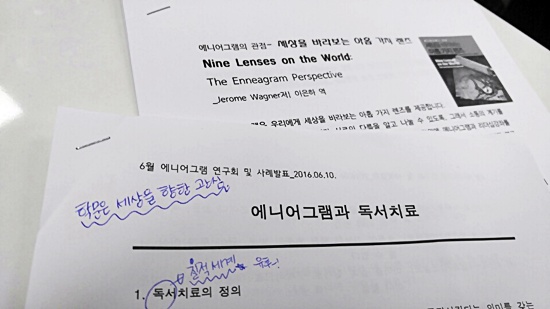 에니어그램의 관점- 세상을 바라보는 아홉 가지 렌즈
Nine Lenses on the World:
The Enneagram Perspective
_Jerome Wagner저| 이은하 역
우리에게 세상을 바라보는 아홉 가지 렌즈를 제공합니다.
다름을 알고 나눌 수 있도록, 그래서 소통의 계기를
6월 에니어그램 연구회 및 사례발표_2016.06.10.
탁문은 세상을 향한 관심
에니어그램과 독서치료
질적세계
유투!
1. 독서치료의 정의
의미를 갖는